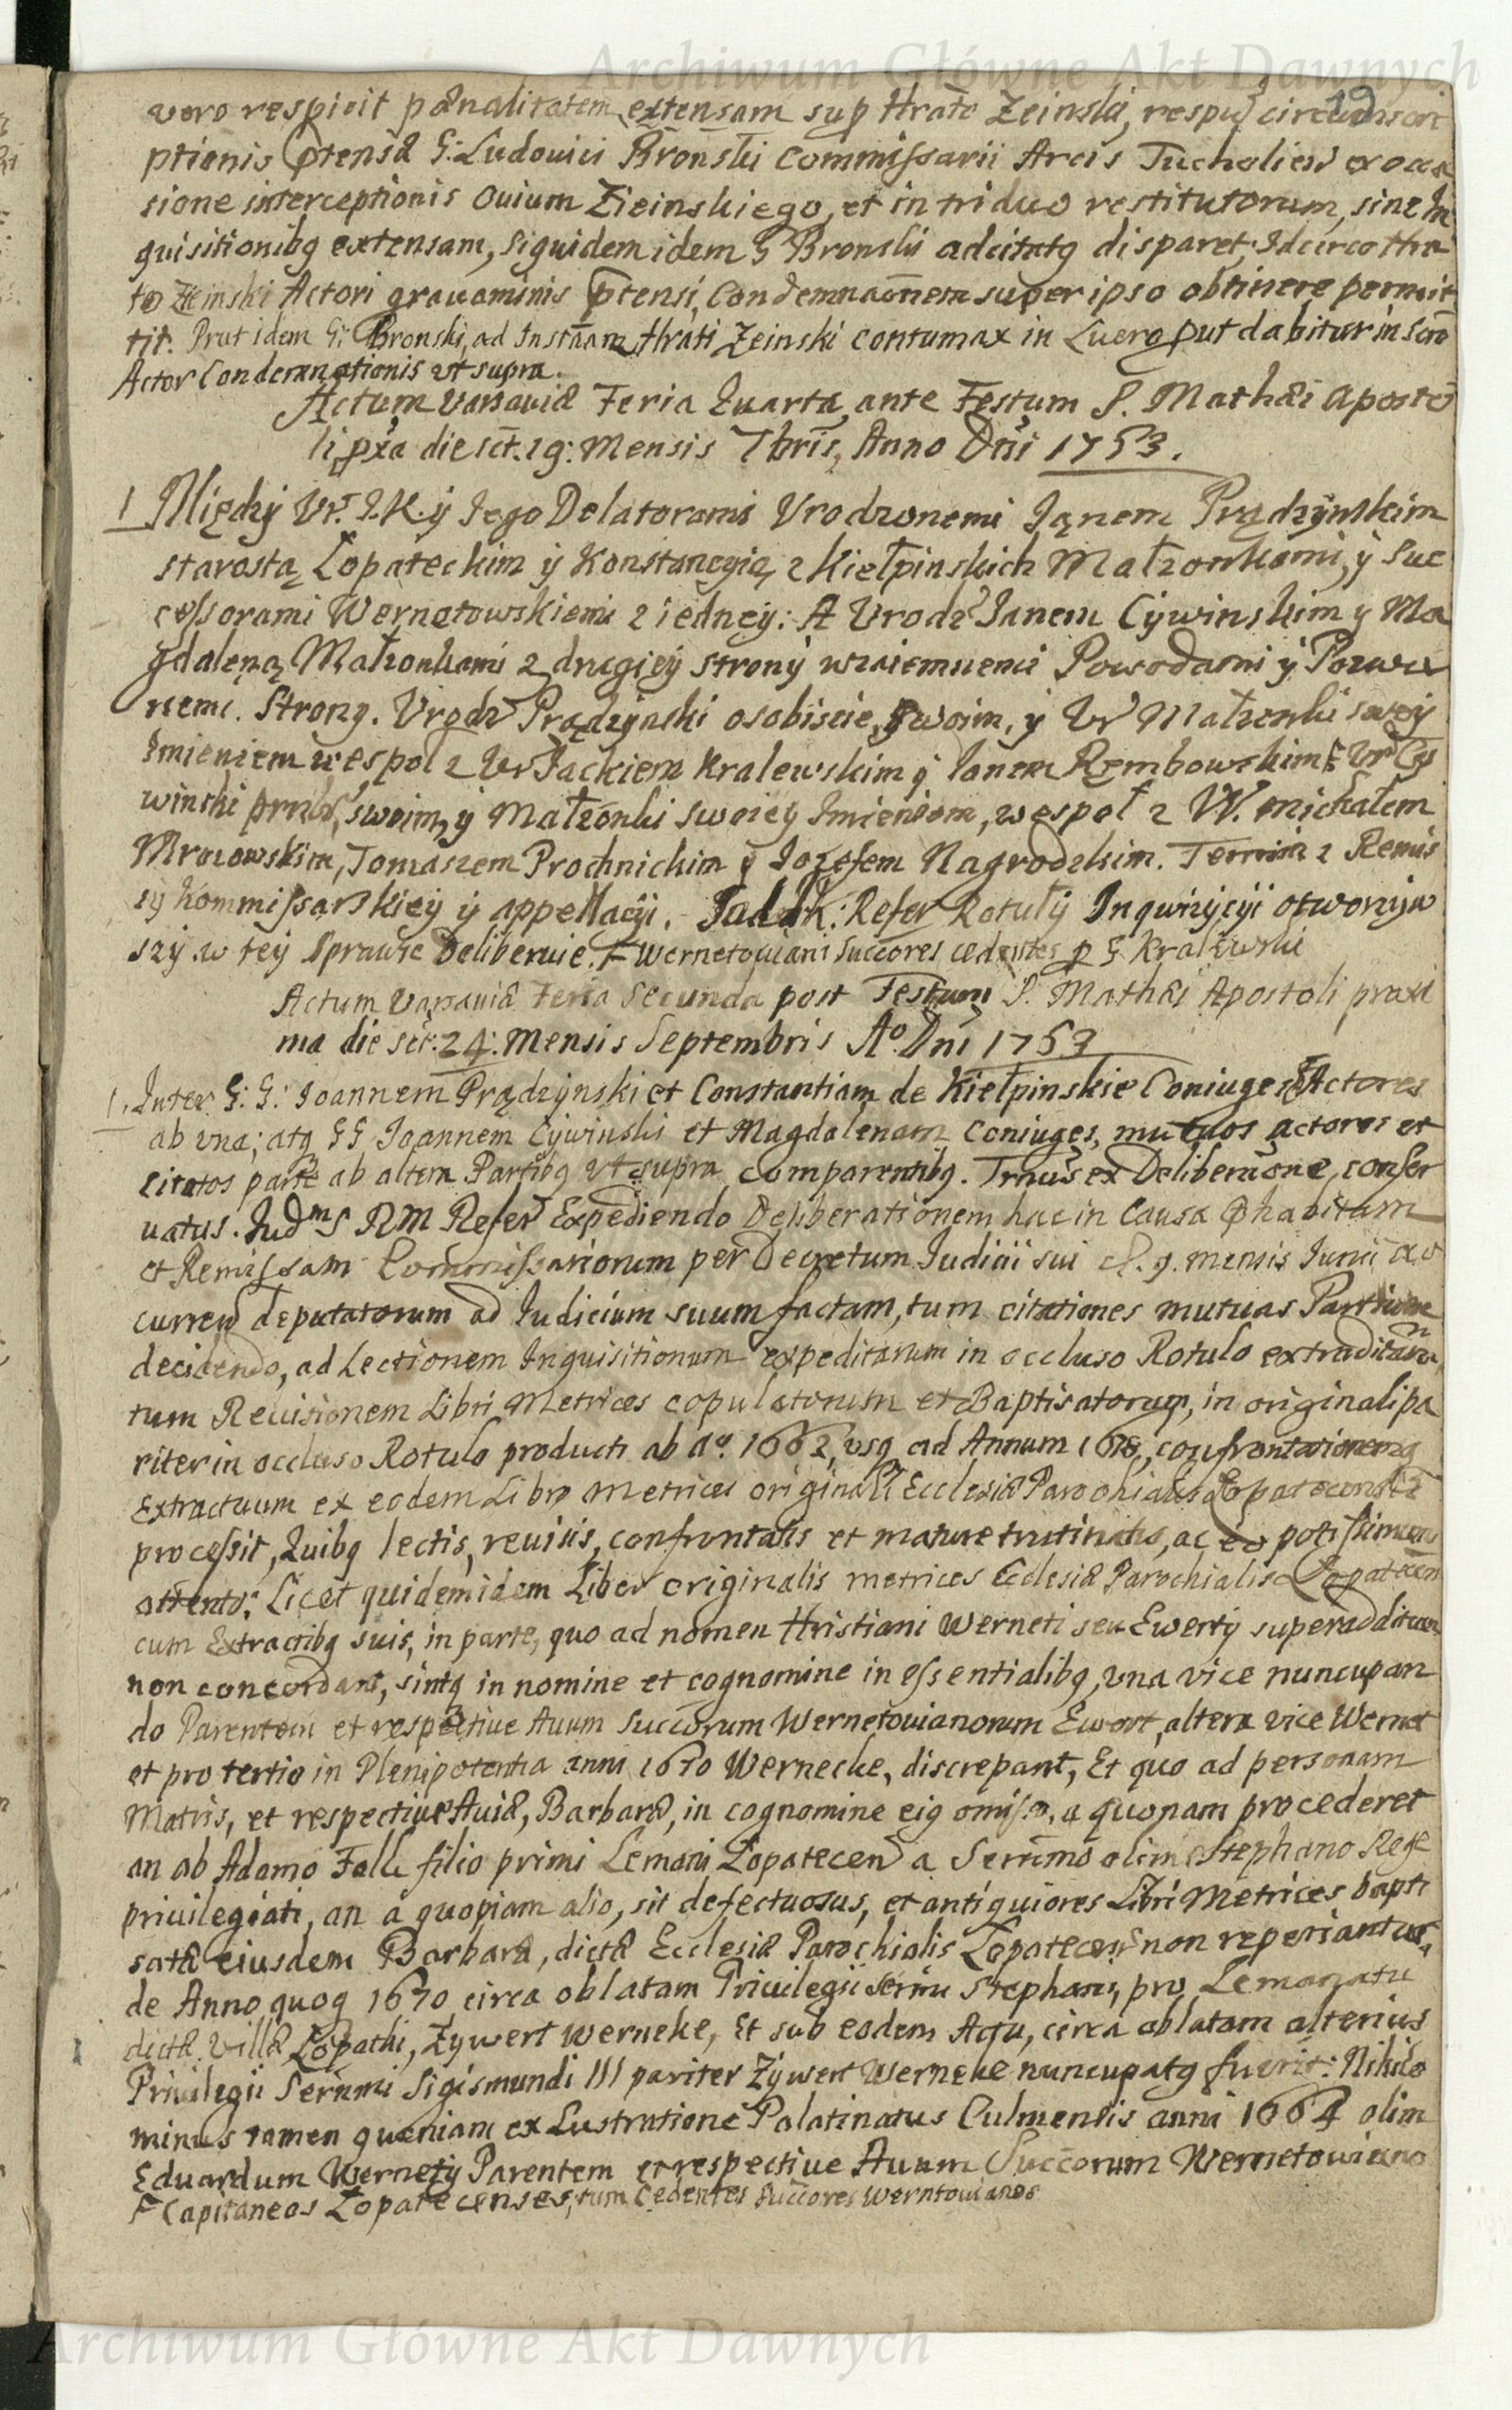 Archiwum Główne Akt Dawnych
19
vero respicit pænalitatem extensam sup Hrato Zeinski, respu circumscri
ptionis ptensæ G: Ludovici Bronski Commissarii Arcis Tucholien ex occa
sione interceptionis Ouium Zieinskiego, et in triduo restitutorum, sine In
quisitionibq extensam, siquidem idem G Bronski adcitatq disparet, Idcirco Hra
to Zeinski Actori grauaminis ptensi, Condemnaõnem super ipso obtinere permit
tit. Prut idem G: Bronski, ad Instãam Hrati Zeinski contumax in Lucro put dabitur in
Actor Condemnationis ut supra.
Actum Varsauiæ Feria Quarta ante Festum S. Mathæi Aposto
li, pxa die sct. 19: Mensis 7bris, Anno Dñi 1753.
1 Między Ur. I.K. y Jego Delatorami Vrodzonemi Janem Prądzynskim
starostą Łopateckim y Konstancyią z Kiełpinskich Małzonkami, y Suc
cessorami Wernetowskiemi z iedney: A Vrodz Janem Cywinskim y Ma
gdaleną Małzonkami z drugiey strony wzaiemnemi Powodami y Pozwa
nemi. Strony. Vrodz Prądzynski osobiscie, swoim, y Ur Małzonki swey
Imieniem wespol z Ur Jackiem Kralewskim y Janem Rembowskim F Ur Cy
winski swoim y Małzonki swoiey Imieniem, wespoł z W. Michałem
Mrozowskim, Tomaszem Prochnickim y Jozefem Nagrodzkim. Termin z Remis
sy Kommissarskiey y appellacyi. Sąd JK: Refer Rotuły Inqwizycyi otworzyw
szy w tey Sprawie Deliberuie. F Wernetoviani Succores cedentes p G Kralewski
Actum Varsauiæ Feria Secunda post Festum S. Mathæi Apostoli proxi
ma die sct: 24: Mensis Septembris Aº Dni 1753
1. Inter G: G: Joannem Prądzynski et Constantiam de Kiełpinskie Coniuges F Actores
ab una; atq GG Joannem Cywinski et Magdalenam Coniuges, mutuos actores et
citatos parte ab altera Partibq ut supra comparentibq. Trnus ex Deliberaõne, conser
uatus. Judm S RM Refer Expediendo Deliberationem hac in Causa phabitam
et Remissam Commissariorum per Decretum Judicii sui d. 9. mensis Junii ao
curren deputatorum ad Judicium suum factam, tum citationes mutuas Partium
decidendo, ad Lectionem Inquisitionum expeditarum in occluso Rotulo extraditarũ
tum Reuisionem Libri Metrices copulatorum et Baptisatorum, in originali pa
riter in occluso Rotulo producti ab aº 1662, usq ad Annum 1678, confrontationemq
Extractuum ex eodem Libro Metrices originali Ecclesiæ Parochialis Lopatecensis
processit, Quibq lectis, reuisis, confrontatis et mature trutinatis, ac eo potissimum
attento: Licet quidem idem Liber originalis metrices Ecclesiæ Parochialis Lopatecen
cum Extractibq suis, in parte, quo ad nomen Hristiani Werneti seu Ewerty superadditum
non concordant, sintq in nomine et cognomine in essentialibq, una vice nuncupan
do Parentem et respectiue Auum Succorum Wernetouianorum Ewert, altera vice Wernet
et pro tertio in Plenipotentia anni 1670 Wernecke, discrepant, Et quo ad personam
Matris, et respectiue Auiæ, Barbaræ, in cognomine eiq omisso, a quonam procederet
an ab Adamo Falk filio primi Lemani Lopatecen a Serrimo olim Stephano Rege
priuilegiati, an a quopiam alio, sit defectuosus, et antiquiores Libri Metrices bapti
satæ eiusdem Barbaræ, dictæ Ecclesiæ Parochialis Lopatecen non reperiantur,
de Anno quoq 1670 circa oblatam Priuilegii Serrmi Stephani, pro Lemanatu
dictæ Villæ Łopatki, Zywert Werneke, Et sub eodem Actu, circa oblatam alterius
Priuilegii Serrmi Sigismundi III pariter Zywert Werneke nuncupatq fuerit: Nihilo
minus tamen quoniam ex Lustratione Palatinatus Culmensis anni 1664 olim
Eduardum Wernety Parentem et respectiue Auum Succorum Wernetouiano
F Capitaneos Lopatecenses, tum Cedentes Succores Werntouianos
Archiwum Główne Akt Dawnych